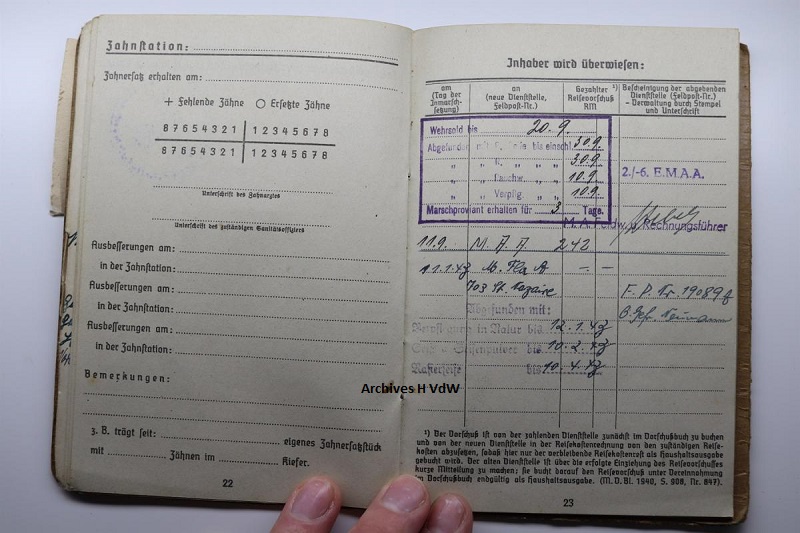 Zahnstation:
Zahnersatz erhalten am:
+ Fehlende Zähne ○ Ersetzte Zähne
8 7 6 5 4 3 2 1 | 1 2 3 4 5 6 7 8
8 7 6 5 4 3 2 1 | 1 2 3 4 5 6 7 8
Unterschrift des Zahnarztes
Unterschrift des zuständigen Sanitätsoffiziers
Ausbesserungen am:
in der Zahnstation:
Ausbesserungen am:
in der Zahnstation:
Ausbesserungen am:
in der Zahnstation:
Bemerkungen:
z. B. trägt seit: eigenes Zahnersatzstück
mit Zähnen im Kiefer.
22
Inhaber wird überwiesen:
am
(Tag der
Inmarsch-
setzung)
an
(neue Dienststelle,
Feldpost-Nr.)
Gezahlter ¹)
Reisevorschuß
RM
Bescheinigung der abgebenden
Dienststelle (Feldpost-Nr.)
- Verwaltung durch Stempel
und Unterschrift
Wehrsold bis 20.9.
Abgefunden mit bis einschl. 30.9.
„ „ „ „ 30.9.
„ „ „ „ 10.9.
„ „ Verpflg. „ „ 10.9.
Marschproviant erhalten für 3 Tage.
2./-6. E.M.A.A.
M.A. Feldw. u Rechnungsführer
11.9. M. A. A 242
11.1.43 M. Fla A - -
703 St. Nazaire
F. P. Nr. 19089
Abgefunden mit:
in Natur bis 12.1.43
bis 10.2.43
bis 10.4.43
Archives H VdW
¹) Der Vorschuß ist von der zahlenden Dienststelle zunächst im Vorschußbuch zu buchen
und von der neuen Dienststelle in der Reisekostenrechnung von den zuständigen Reise-
kosten abzusetzen, sodaß hier nur der verbleibende Reisekostenrest als Haushaltsausgabe
gebucht wird. Der alten Dienststelle ist über die erfolgte Einziehung des Reisevorschusses
kurze Mitteilung zu machen; sie bucht darauf den Reisevorschuß unter Vereinnahmung
im Vorschußbuch endgültig als Haushaltsausgabe. (M. D. Bl. 1940, S. 908, Nr. 847).
23